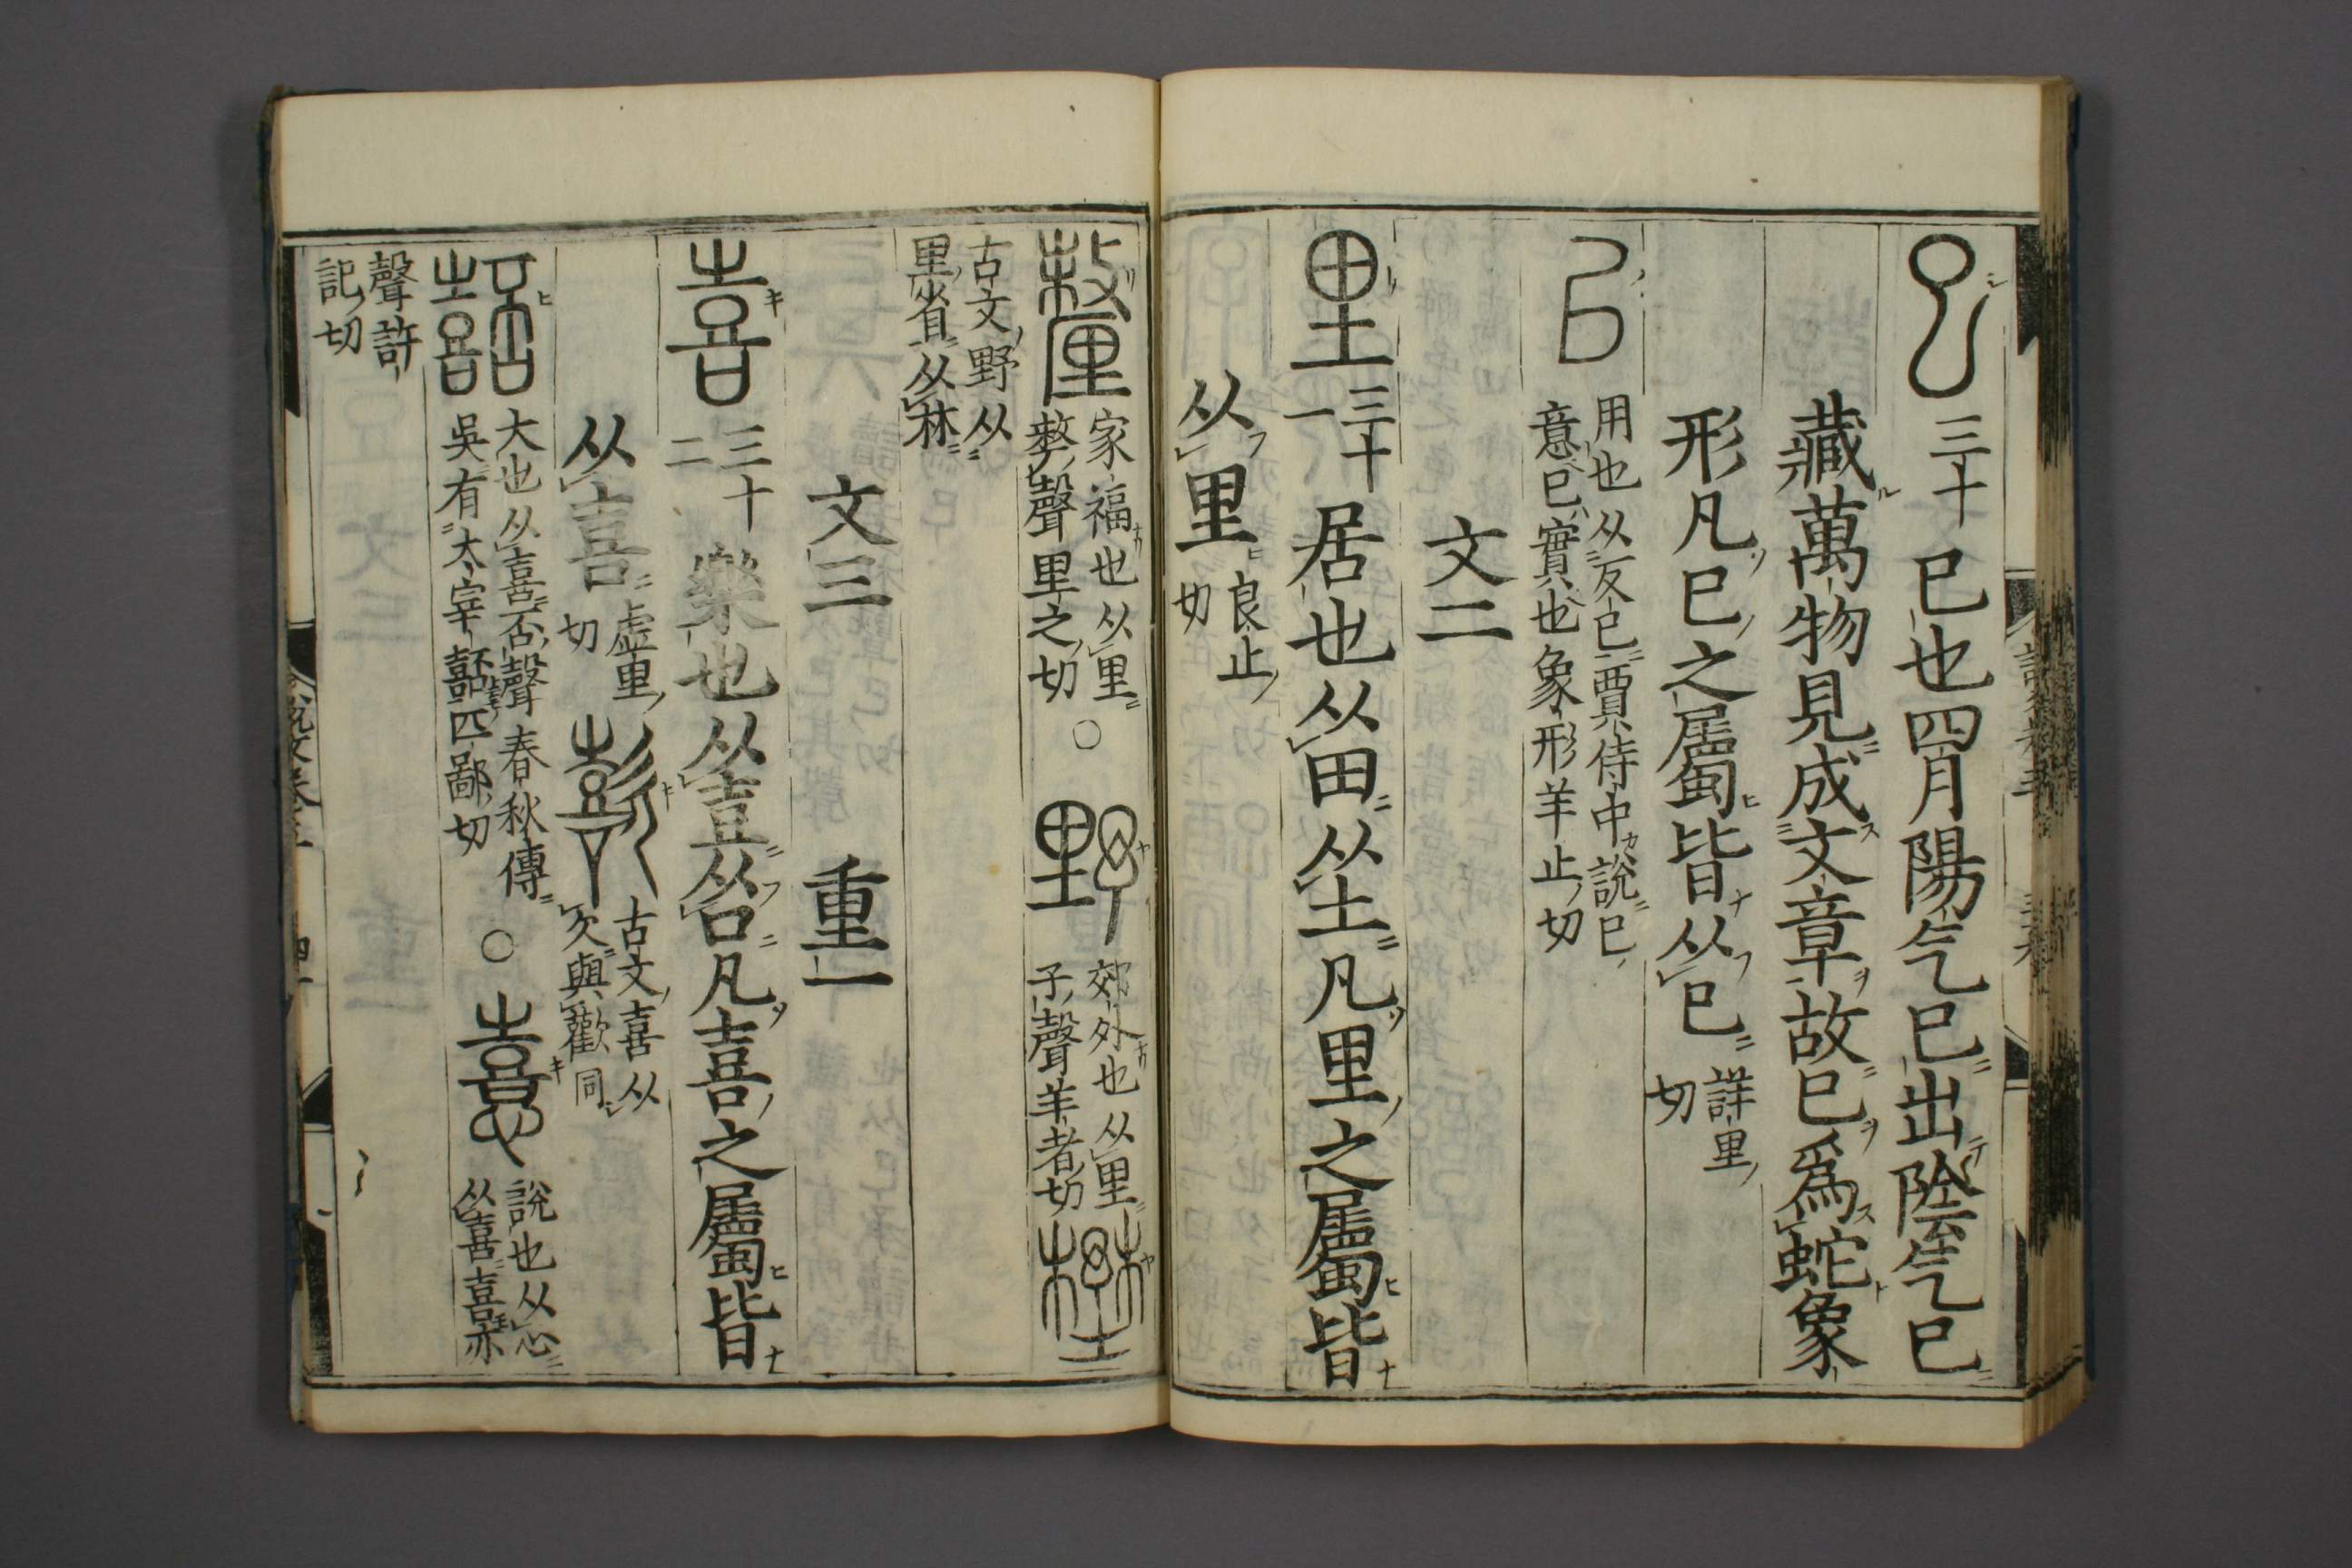 巳三十巳也四月陽气巳出陰气巳
藏萬物見成文章故巳爲蛇象
形凡巳之屬皆从巳詳里切
㠯用也从反巳賈侍中說巳意巳實也象形羊止切
文二
里三十一居也从田从土凡里之屬皆
从里良止切
釐家福也从里𠩺聲里之切○野郊外也从里予聲羊者切壄
古文野从里省从林
文三重一
喜三十二樂也从壴从口凡喜之屬皆
从喜虛里切歖古文喜从欠與歡同
嚭大也从喜否聲春秋傳吳有太宰嚭匹鄙切○憙說也从心从喜喜亦
聲許記切